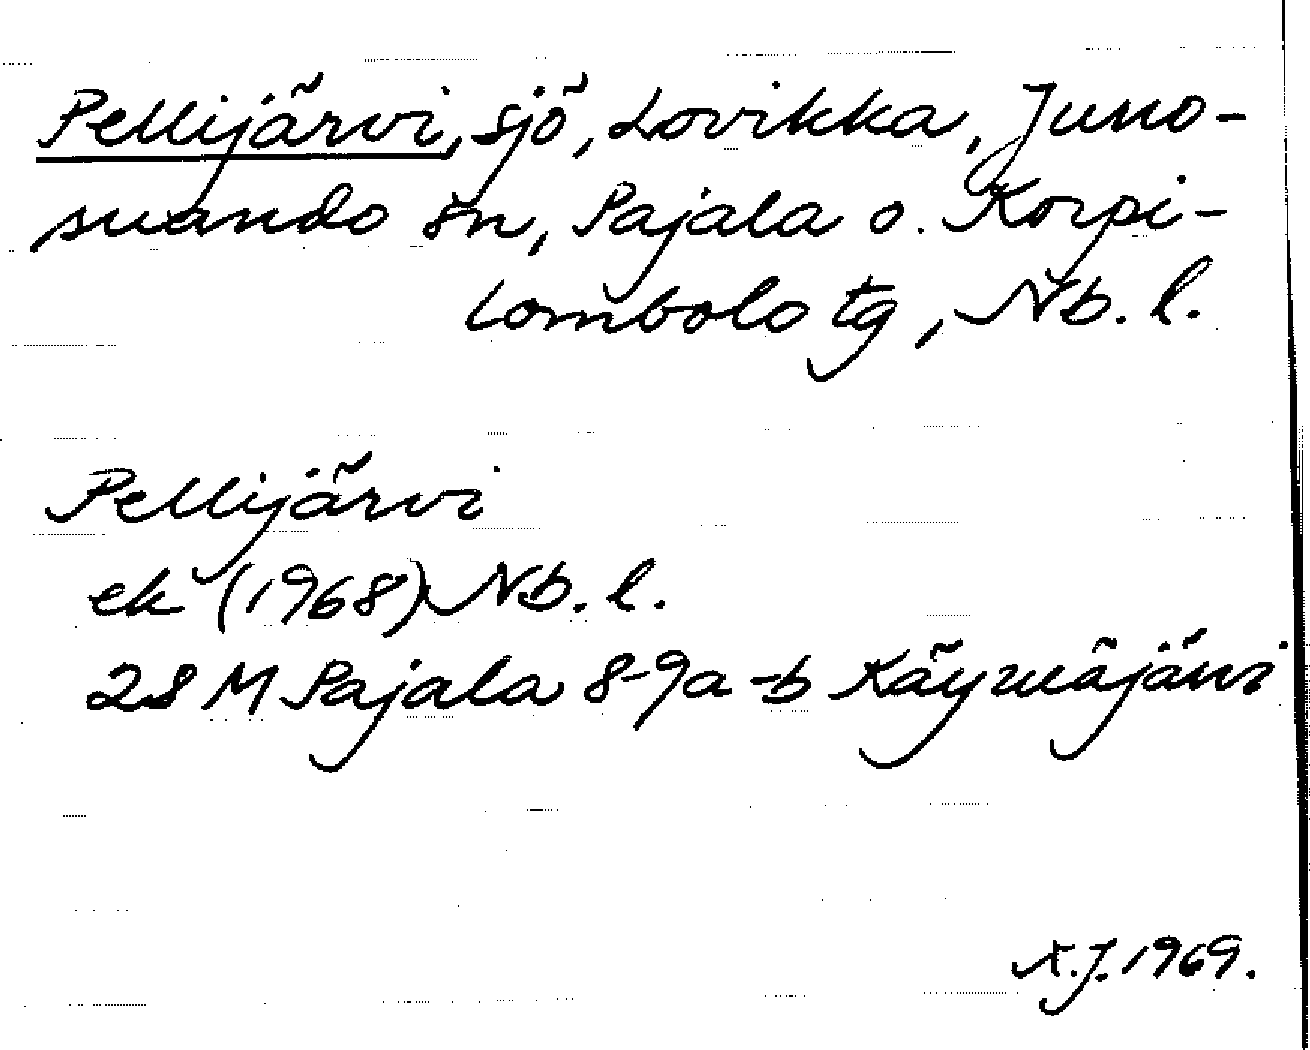 Pellijärvi, sjö, Lovikka, Juno-
suando sn, Pajala o. Korpi-
lombolo tg, Nb. l.
Pellijärvi
ek (1968) Nb. l.
28 M Pajala 8-9a-b Käymäjärvi
A.J. 1969.